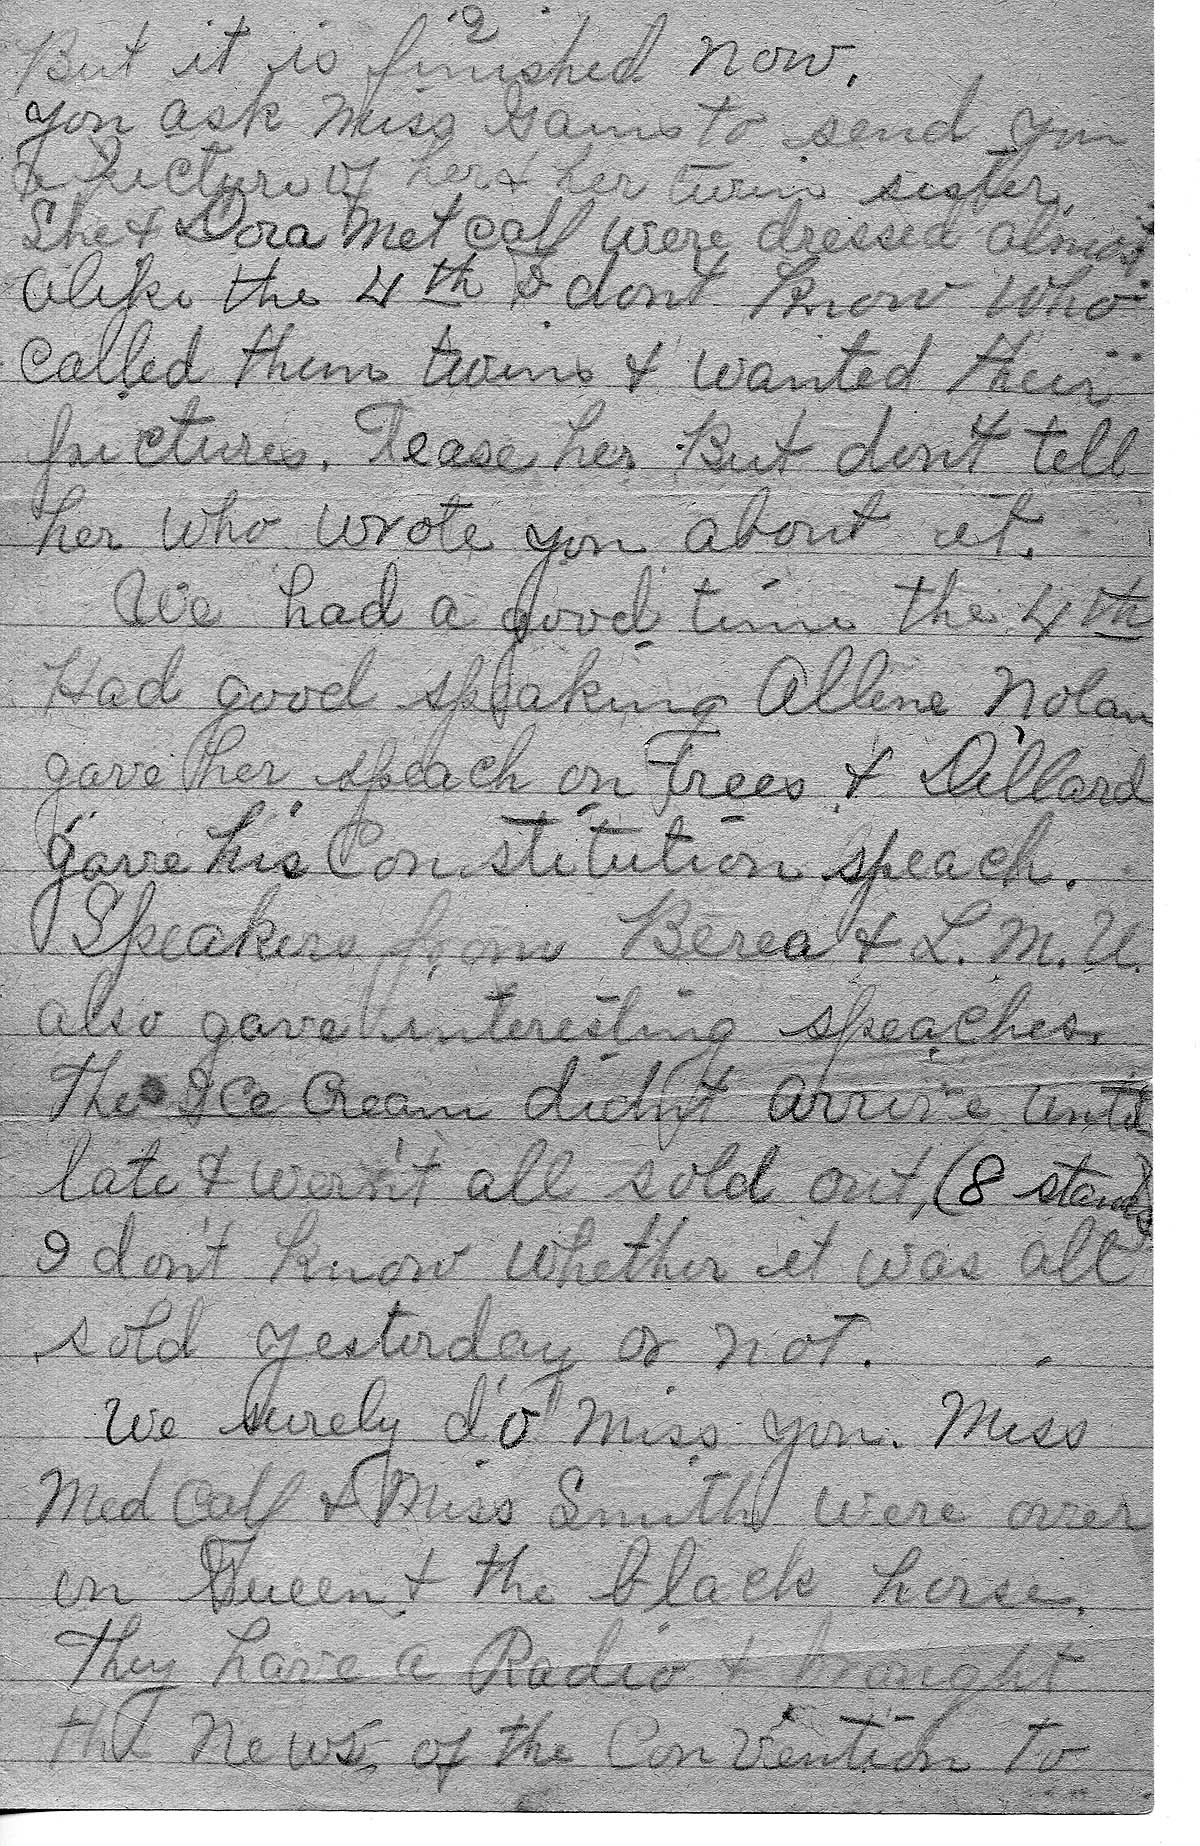 2
But it is finished now.
You ask Miss Gains to send you
a picture of her & her twin sister.
She & Dora Metcalf were dressed almost
alike the 4th I dont know who
called them twins & wanted their
pictures. Tease her But don't tell
her who wrote you about it.
We had a good time the 4th
Had good speaking Allene Nolan
gave her speach on Trees & Dillard
gave his Constitution speach.
Speakers from Berea & L. M. U.
also gave interesting speaches.
The Ice Cream didn't arrive until
late & wern't all sold out, (8 stands)
I don't know whether it was all
sold yesterday or not.
We surely do miss you. Miss
Med Calf & Miss Smith were over
on Queen & the black horse.
They have a Radio & brought
the News of the Convention to